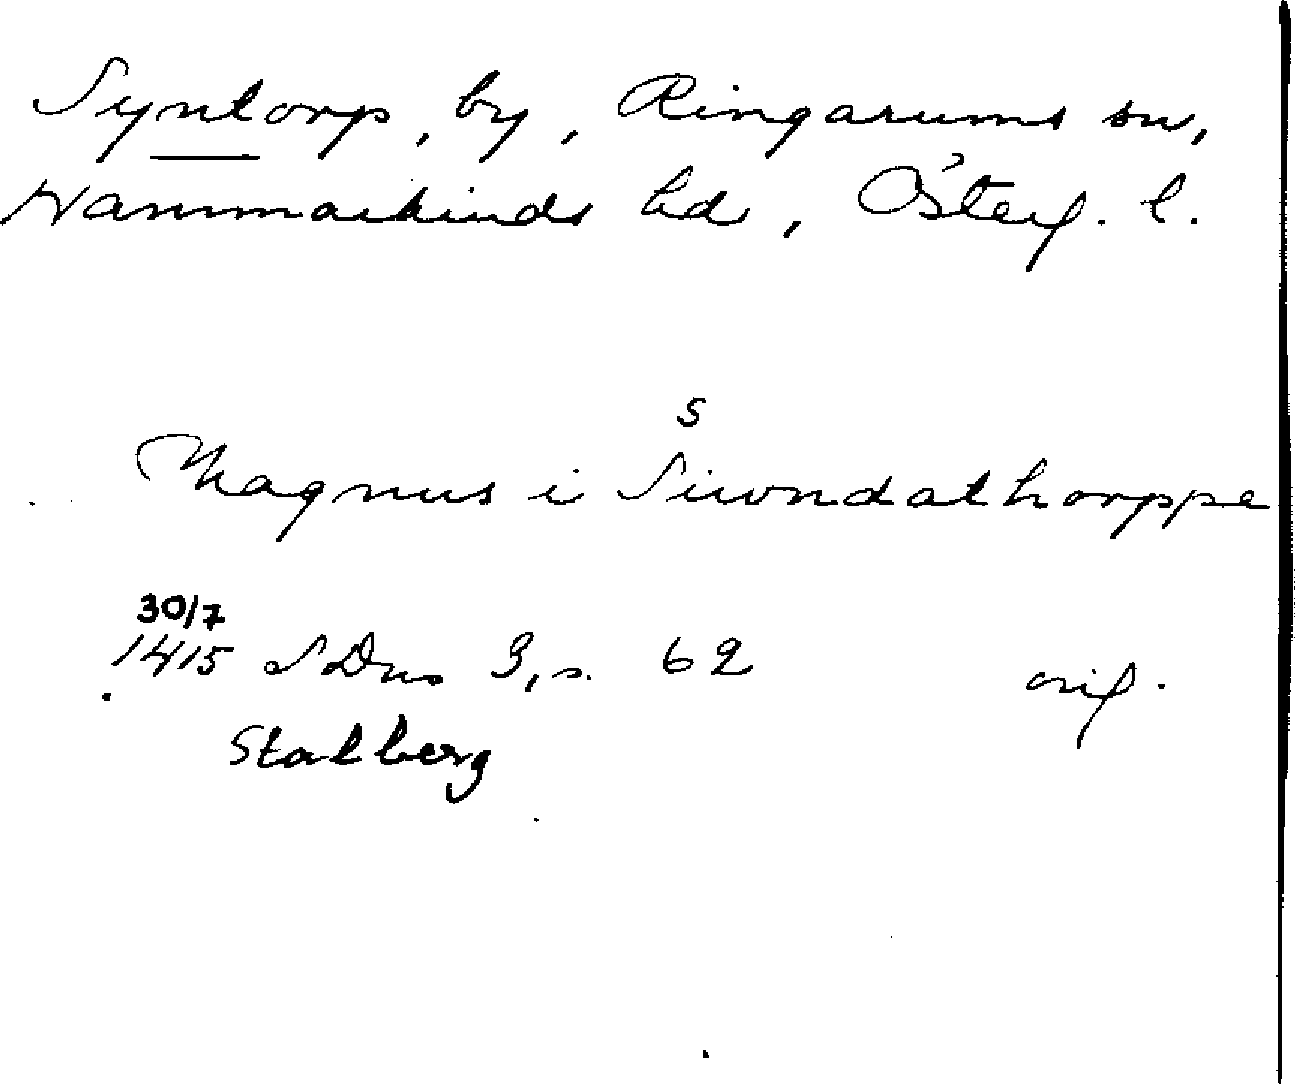 Syntorp, by, Ringarums sn,
Hammarkinds hd, Österg. l.
s
Magnus i Siwondathorppe
30/7
1415 SDns 3, s. 62 orig.
Stalberg